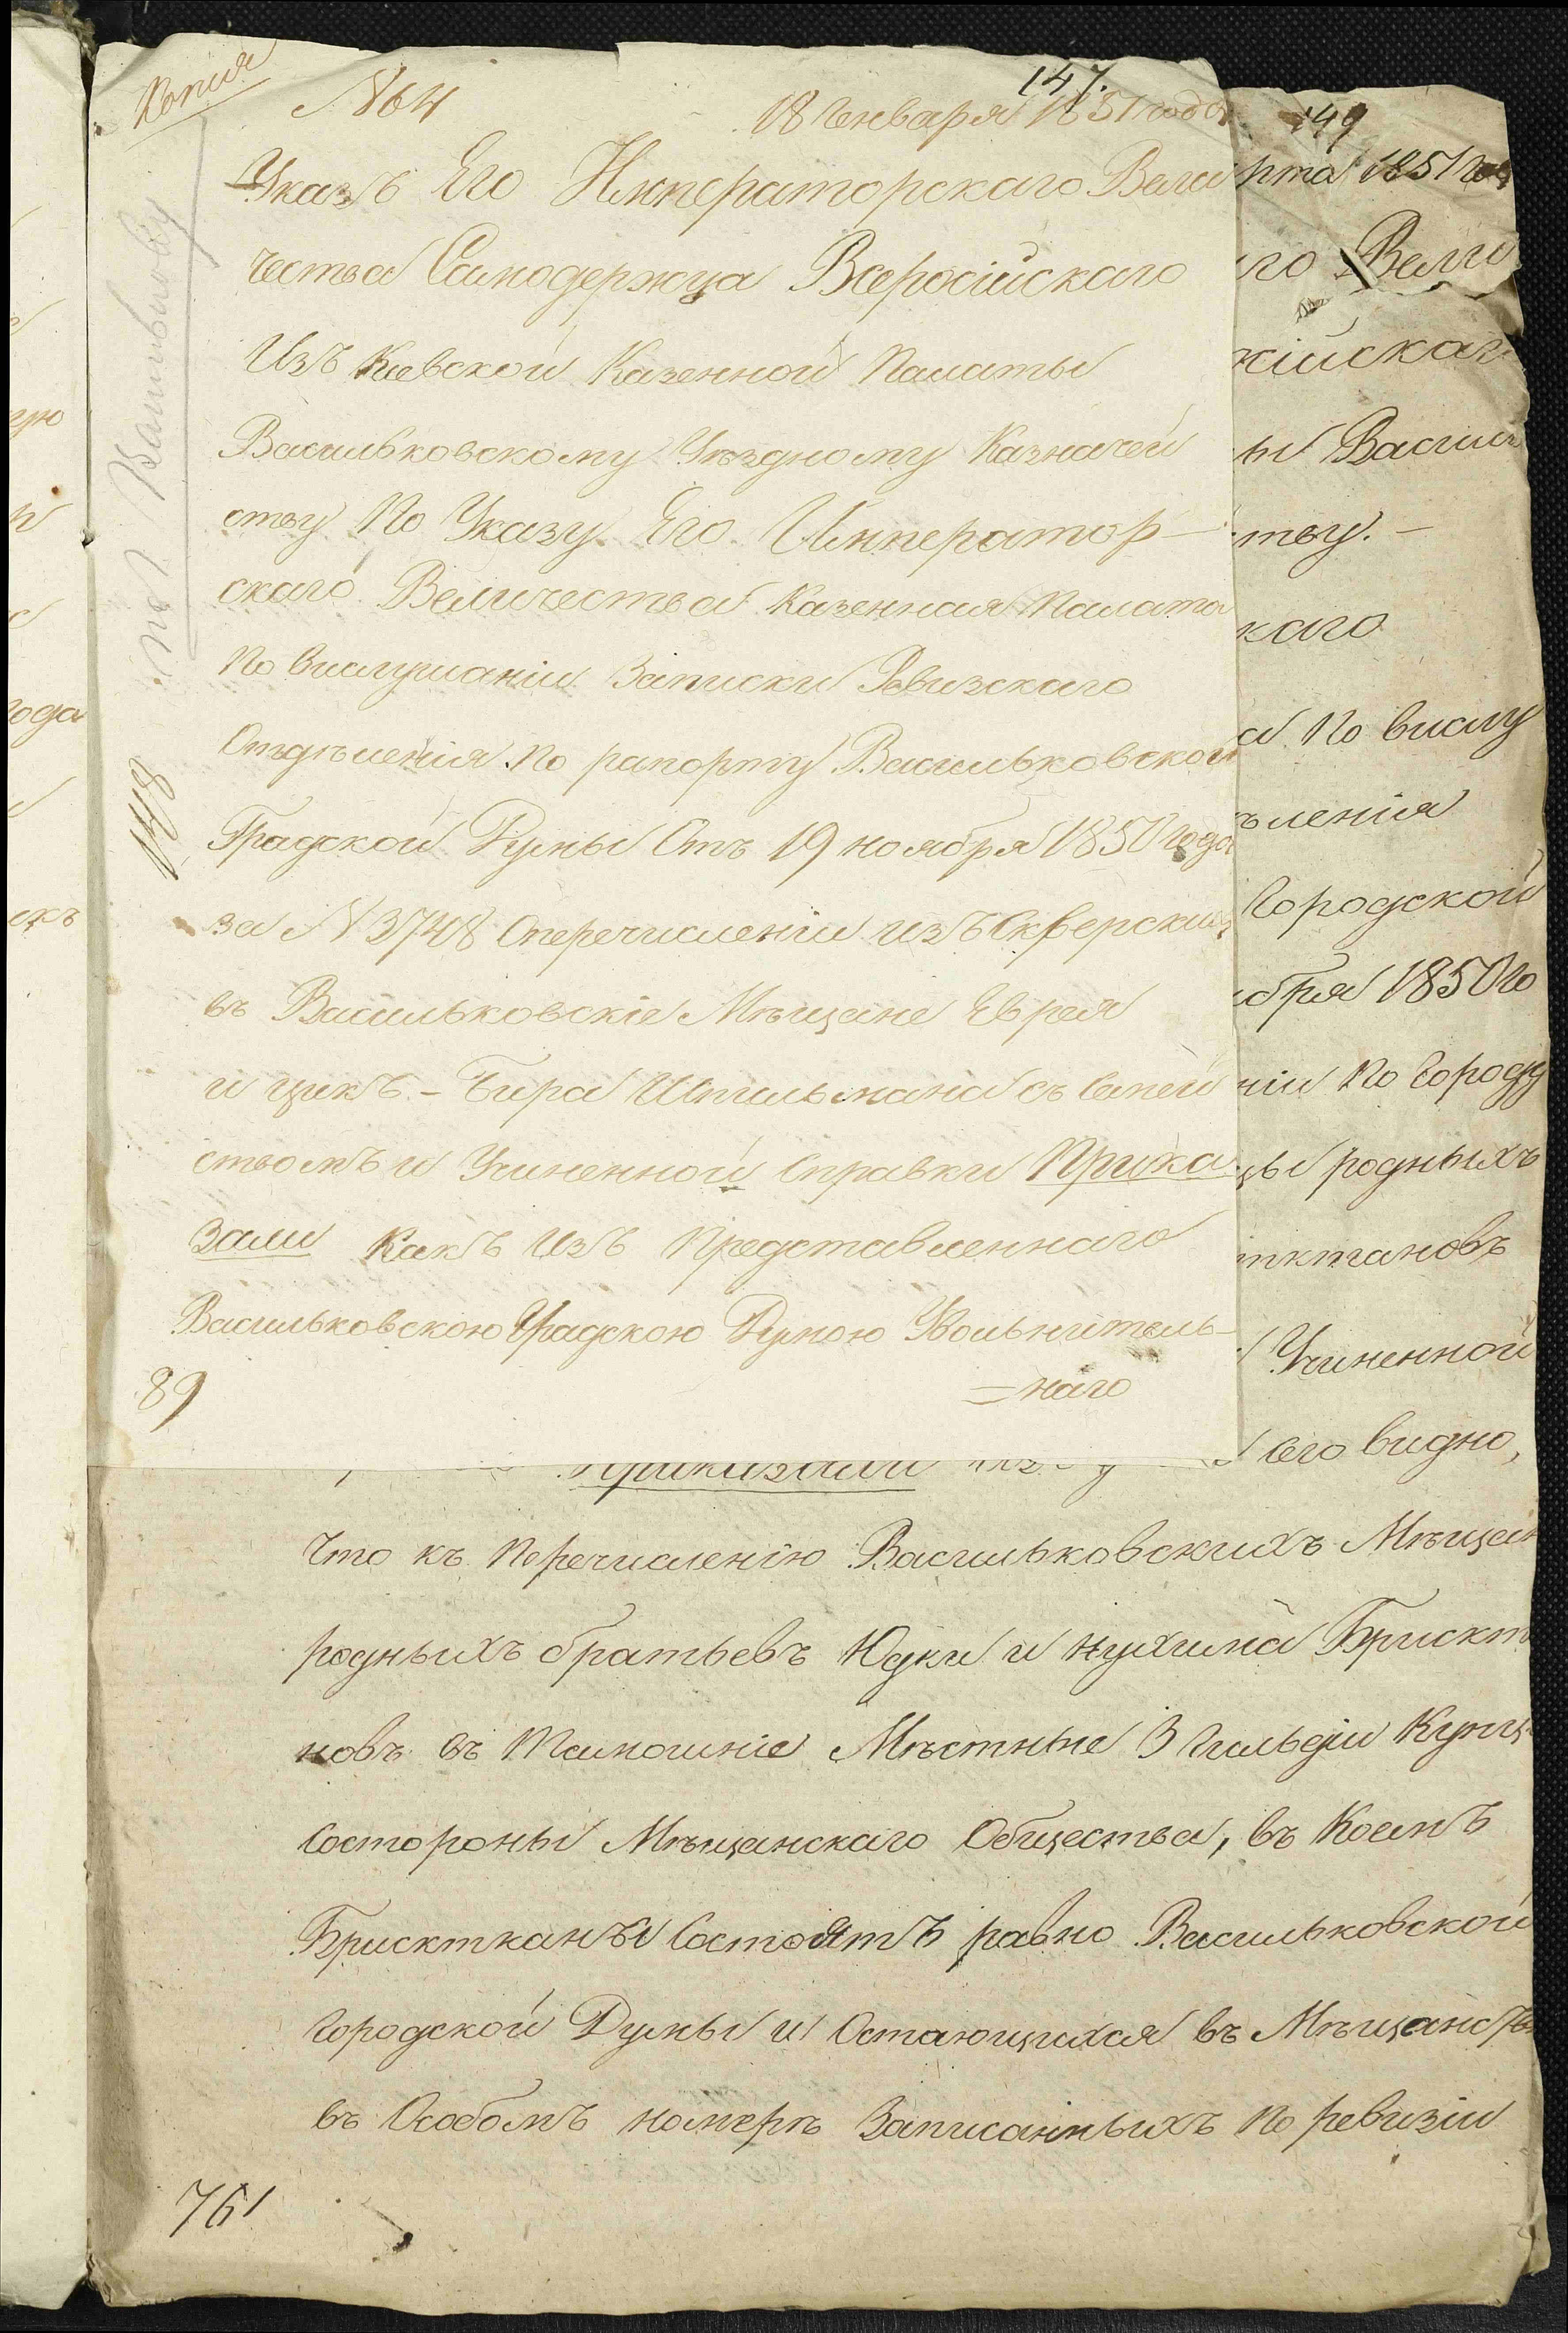 Копия
N 64
147.
18 Генваря 1851 года
Указъ Его Императорскаго Вели
чества Самодержца Всеросійскаго
Изъ Кіевской Казенной Палаты
Васильковскому Уѣздному Казначей
ству По Указу Его Император-
скаго Величества Казенная Палата
По выслушаніи Записки Ревизскаго
Отдѣленія по рапорту Васильковской
Градской Думы Отъ 19 ноября 1850 года
за N 3748 Оперечисленіи изъ Сквирских
въ Васильковскіе Мѣщане Еврея
Бера Шпильмана съ Семей
ствомъ и Учиненной Справки Прика
зали Какъ Изъ Представленнаго
Васильковскою Градскою Думою Увольнитель-
=наго
89
148
по г. Василькову
149
рта 1851 го
го Вели
скаго
ы Василь
тву.-
каго
а По выслу
ѣленія
Городской
ября 1850 го
ніи По Городу
цы родныхъ
Учиненной
сего видно,
Приказали
Что къ Перечисленію Васильковскихъ Мѣщан
родныхъ братьевъ Юдки и Нухима Брискт
новъ въ Тамошніе Мѣстные 3 Гильдіи Купц
Состороны Мѣщанскаго Общества, въ Коемъ
Брисктканы Состоятъ равно Васильковской
Городской Думы и Остающихся въ Мѣщанств
въ Особомъ номерѣ Записанныхъ По ревизіи
761
года